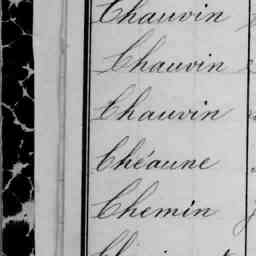 Chauvin
Chauvin
Chauvin
Chéaune
Chemin